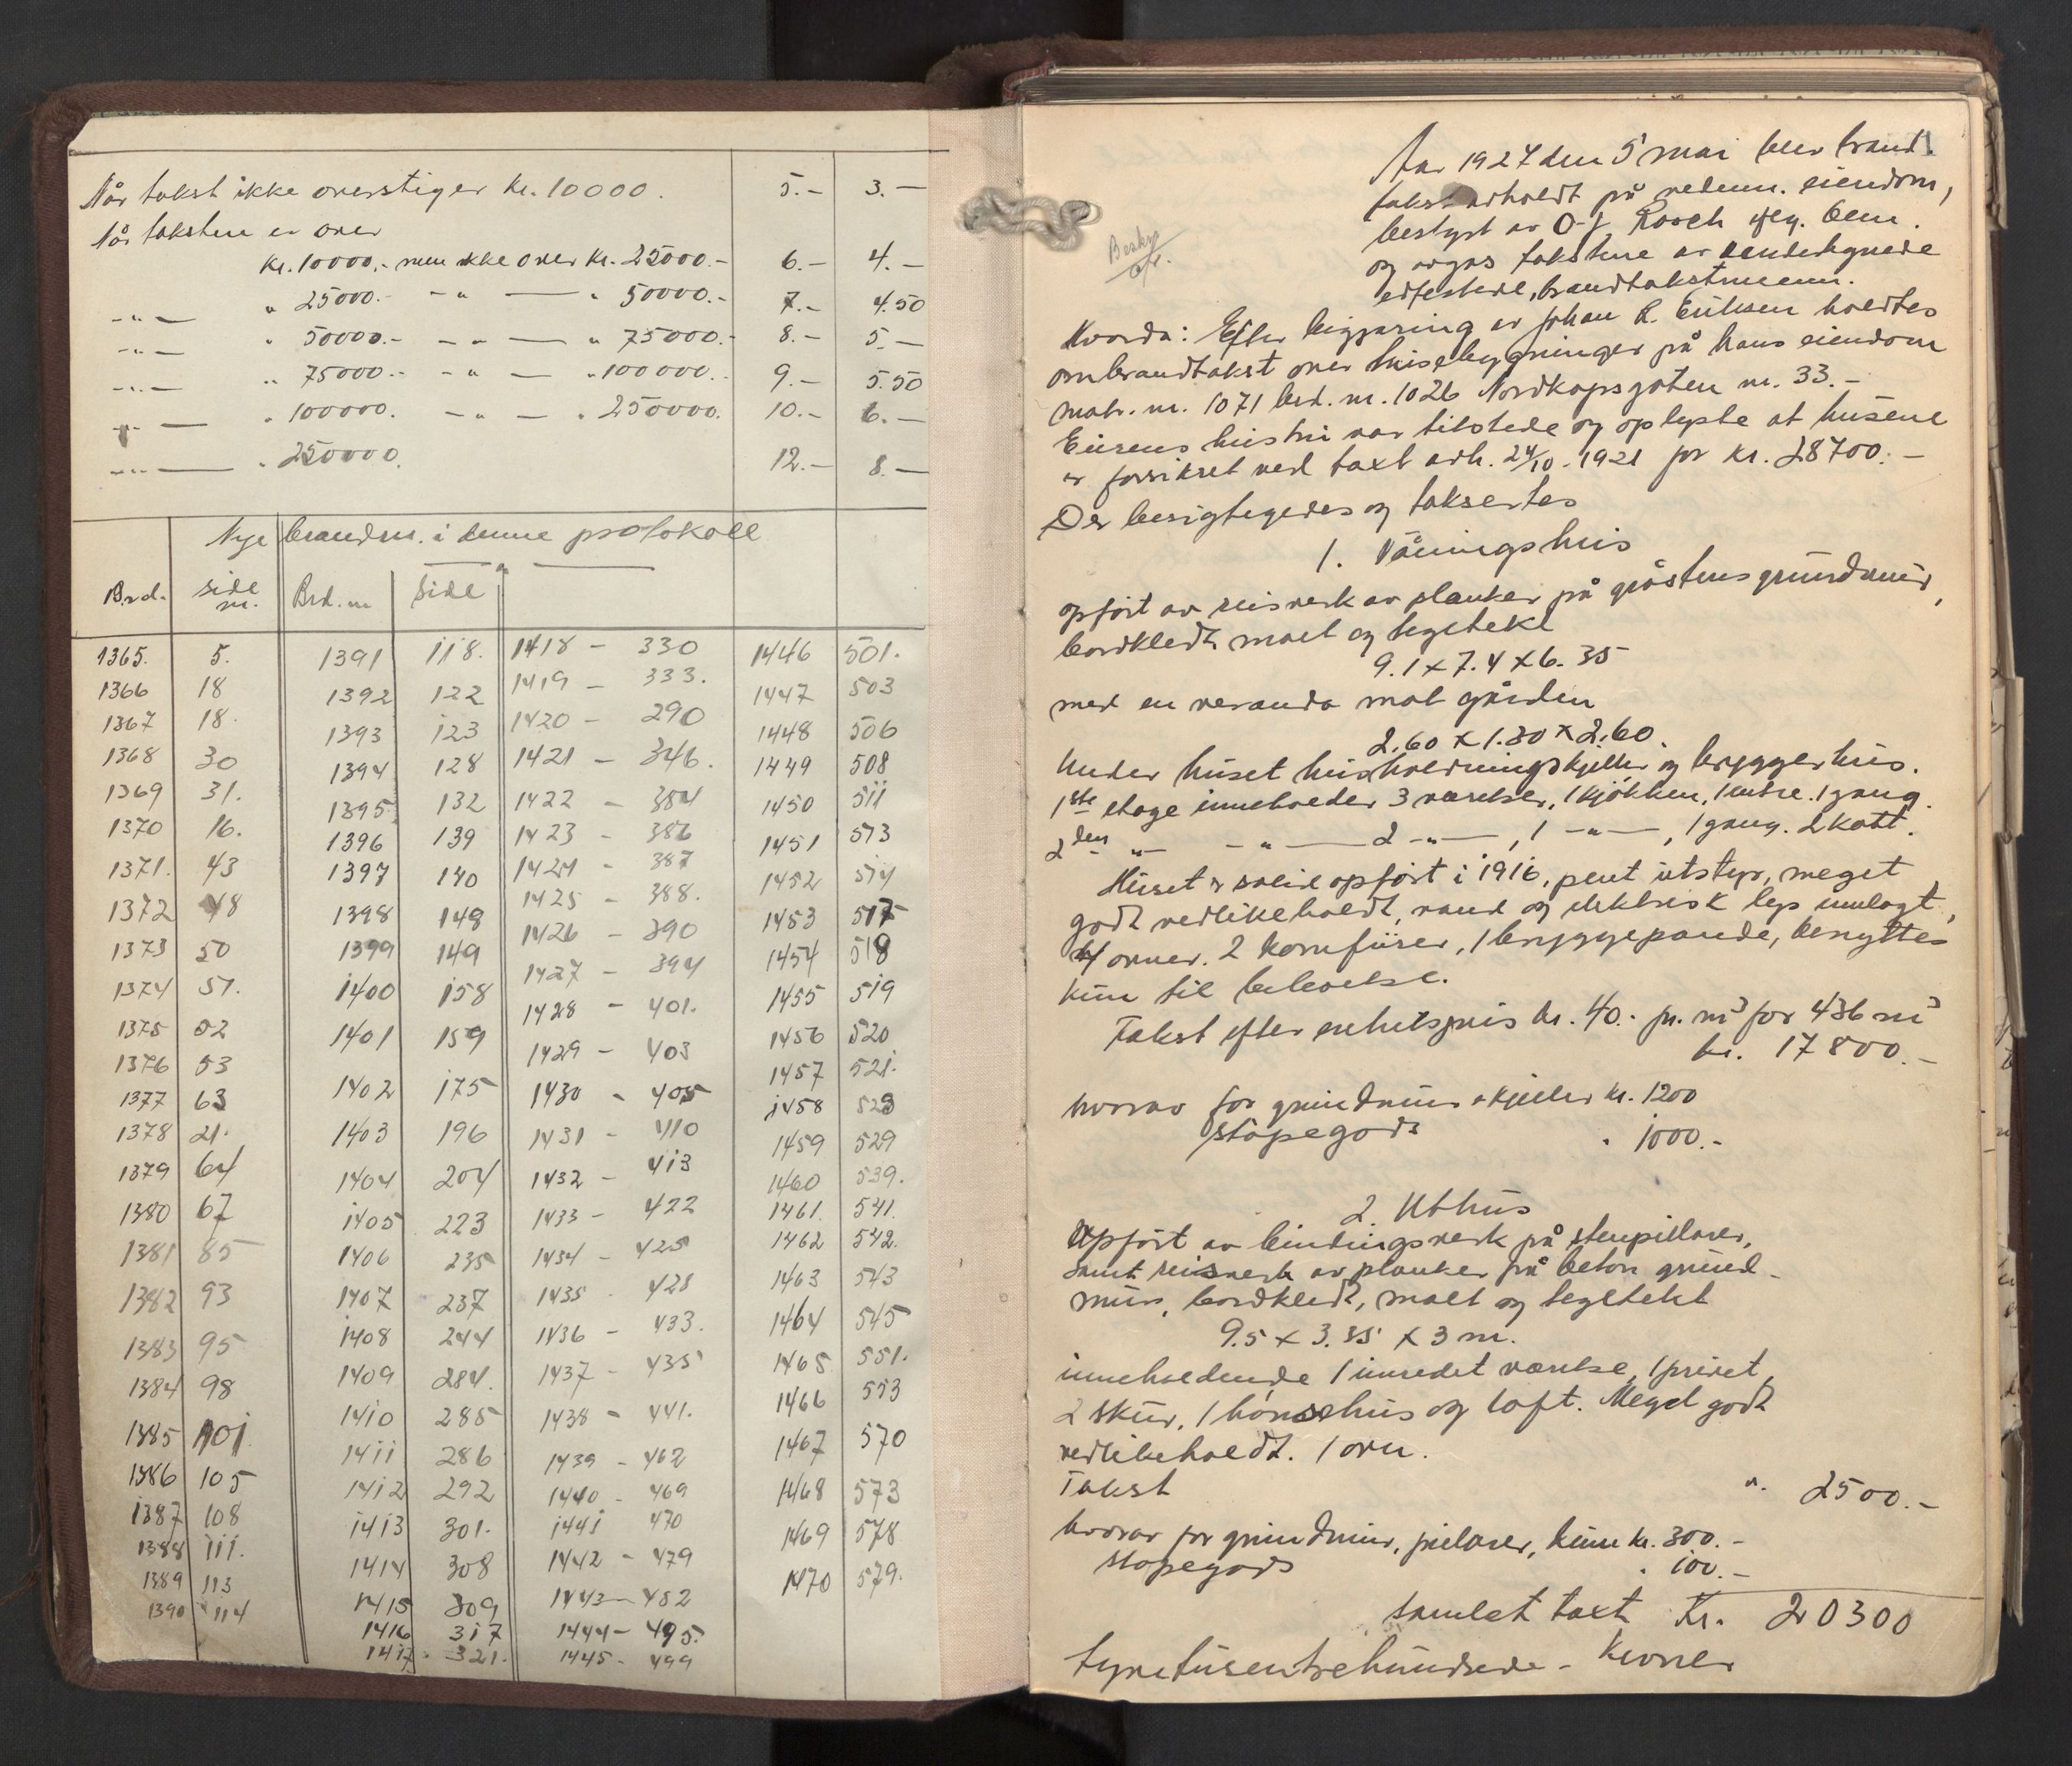 Når takst ikke overstiger kr. 10000. 5.- 3.-
Når taksten er over
kr. 10000.- men ikke over kr. 25000.- 6.- 4.-
-"- " 25000.- -"- " 50000.- 7.- 4.50
-"- " 50000.- -"- " 75000.- 8.- 5.-
-"- " 75000.- -"- " 100000.- 9.- 5.50
-"- " 100000. -"- " 250000. 10.- 6.-
-"- " 250000. 12.- 8.-
Nye brandnr. i denne protokoll
Brd. side nr. Brd. nr Side
1365. 5. 1391 118. 1418 - 330 1446 501.
1366 18 1392 122 1419 - 333. 1447 503
1367 18. 1393 123 1420 - 290 1448 506
1368 30 1394 128 1421 - 346. 1449 508
1369 31. 1395 132 1422 - 384 1450 511
1370 16. 1396 139 1423 - 386 1451 513
1371. 43 1397 140 1424 - 387 1452 514
1372 48 1398 148 1425 - 388. 1453 517
1373 50 1399 149 1426 - 390 1454 518
1374 51. 1400 158 1427 - 394 1455 519
1375 52 1401 159 1428 - 401. 1456 520
1376 53 1402 175 1429 - 403 1457 521.
1377 63 1403 196 1430 - 405 1458 523
1378 21. 1404 204 1431 - 410 1459 529
1379 64 1405 223 1432 - 413 1460 539.
1380 67 1406 235 1433 - 422 1461. 541.
1381 85 1407 237 1434 - 425 1462 542.
1382 93 1408 244 1435 - 428 1463 543
1383 95 1409 284. 1436 - 433. 1464 545
1384 98 1410 285 1437 - 435 1465 551.
1385 101 1411 286 1438 - 441. 1466 553
1386 105 1412 292 1439 - 462 1467 570
1387 108 1413 301. 1440 - 469 1468 573
1388 111. 1414 308 1441 470 1469 578
1389 113 1415 309 1442 - 479 1470 579.
1390 114 1416 317 1443 - 482
1417. 321. 1444 - 495.
1445 - 499
1
Aar 1927 den 5 mai blev brand
takst avholdt på nedenn. eiendom,
bestyrt av O. J. efter bem.
og avgas takstene av undertegnede
edfestede, brandtakstmenn.
Beskr.
Hvorda: Efter begjæring av Johan L. Eriksen holdtes
ombrandtakst over husebygninger på hans eiendom
matr. nr. 1071 brd. nr. 1026 Nordkapsgaten nr. 33.-
hustru var tilstede og oplyste at husene
er forsikret ved taxt avh. 24/10-1921 for kr. 28700.-
Der besigtegedes og taksertes
1. Våningshus
opført av reisverk av planker på gråstens grundmur,
bordkledt malt og tegltekt
9.1 x 7.4 x 6.35
med en veranda mot gården
2.60 x 1.30 x 2.60.
Under huset husholdningskjeller og bryggerhus.
1ste etage inneholder 3 værelser, 1 kjøkken, 1 entre. 1 gang.
2den -"- -"- 2 -"-, 1 -"-, 1 gang. 2 kott.
Huset er solid opført i 1916, pent utstyr, meget
godt vedlikeholdt, vand og elektrisk lys innlagt,
4 ovner. 2 komfurer, 1 bryggepande, benyttes
kun til beboelse.
Takst efter enhetspris kr. 40.- pr. m³ for 436 m³
kr. 17800.-
hvorav for grundmur & kjeller kr. 1200
støpegods " 1000.-
2. Uthus
Opført av bindingsverk på stenpillarer,
samt reisverk av planker på beton grund-
mur, bordkledt, malt og tegltekt
9.5 x 3.35 x 3 m.
inneholdende 1 inredet værelse, 1 privet,
2 skur, 1 hønsehus og loft. Meget godt
vedlikeholdt. 1 ovn.
Takst " 2500.-
hvorav for grundmur, pilarer, kr. 300.-
støpegods " 100.-
samlet taxt Kr. 20300
tyvetusentrehundrede - kroner